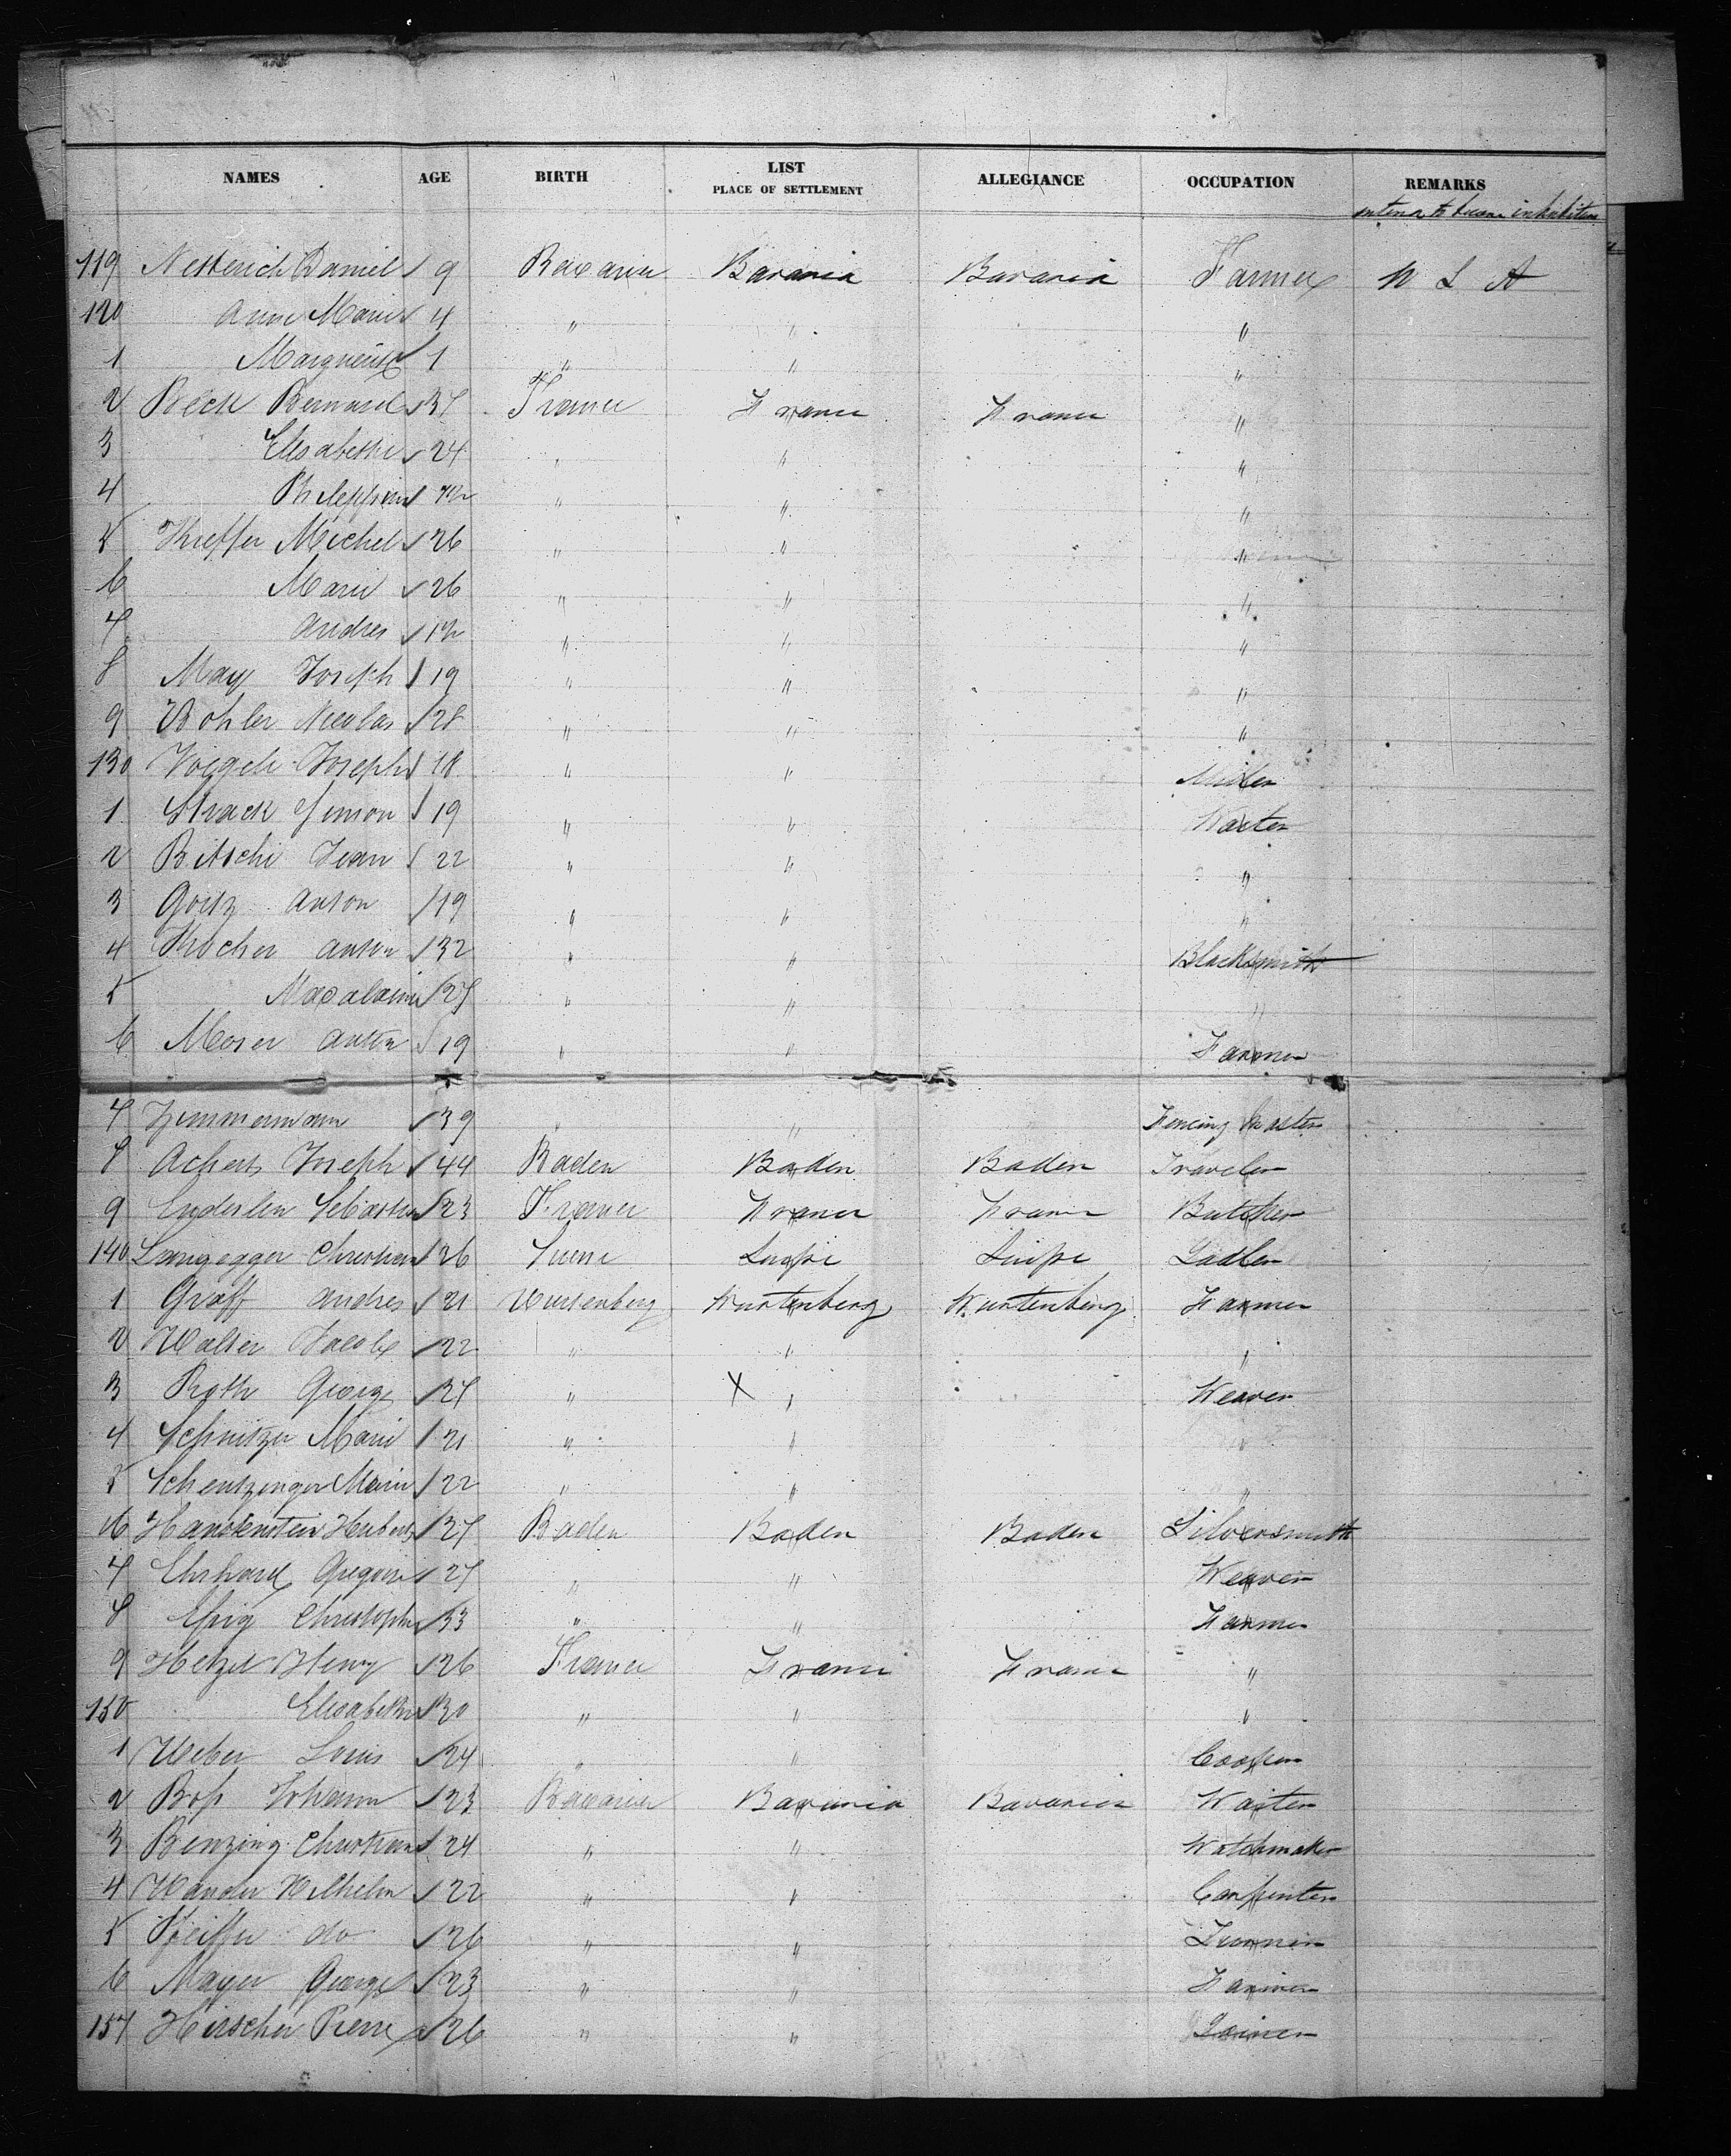 NAMES AGE BIRTH LIST PLACE OF SETTLEMENT ALLEGIANCE OCCUPATION REMARKS
intend to become inhabitants
119 Nesterich Daniel 9 Bavaria Bavaria Bavaria Farmer U S A
120 Anne Marie 4 " " "
1 Marguerite 1 " " "
2 Beck Bernard 37 France France France "
3 Elisabethe 24 " " "
4 Philippine " " "
5 Kieffer Michel 26 " " "
6 Marie 26 " " "
7 Andres " " "
8 May Joseph 19 " " "
9 Bohler Nicolas 28 " " "
130 Voegeli Joseph 18 " "
1 Strack Simon 19 " " Waiter
2 Bitschi Jean 22 " " "
3 Goetz Anton 19 " " "
4 Kocher Anton 32 " " Blacksmith
5 27 " " "
6 Moser Anton 19 " " Farmer
7 Zimmermann 39 " " Fencing Master
8 Achert Joseph 44 Baden Baden Baden Traveler
9 Enderlen Sebastian 23 France France France Butcher
140 Langegger Christian 26 Suisse Suisse Suisse Sadler
1 Graff Andres 21 Wurtenberg Wurtenberg Wurtenberg Farmer
2 Walter Jacob 22 " " "
3 Roth George 27 " X " Weaver
4 Schnitzer Marie 21 " " "
5 Schentzinger Marie 22 " " "
6 27 Baden Baden Baden Silversmith
7 Ehrhard Gregoire 27 " " Weaver
8 Epig Christophe 33 " " Farmer
9 Hetzel Henry 26 France France France "
150 Elisabethe 30 " " "
1 Weber Louis 24 " " Cooper
2 Boß Johann 23 Bavaria Bavaria Bavaria Waiter
3 Benzing Christian 24 " " Watchmaker
4 Wander Wilhelm 22 " " Carpenter
5 Pfeiffer do 26 " "
6 Mayer George 23 " " Farmer
157 Hirscher Pierre 26 " " Joiner